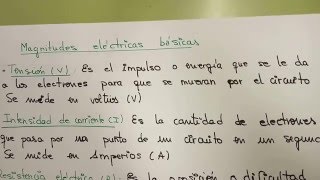 Magnitudes eléctricas básicas
- Tensión (V) Es el impulso o energía que se le da
a los electrones para que se muevan por el circuito
Se mide en voltios (V)
Intensidad de corriente (I) Es la cantidad de electrones
que pasa por un punto de un circuito en un segundo
Se mide en Amperios (A)
Resistencia eléctrica Es la oposición o dificultad